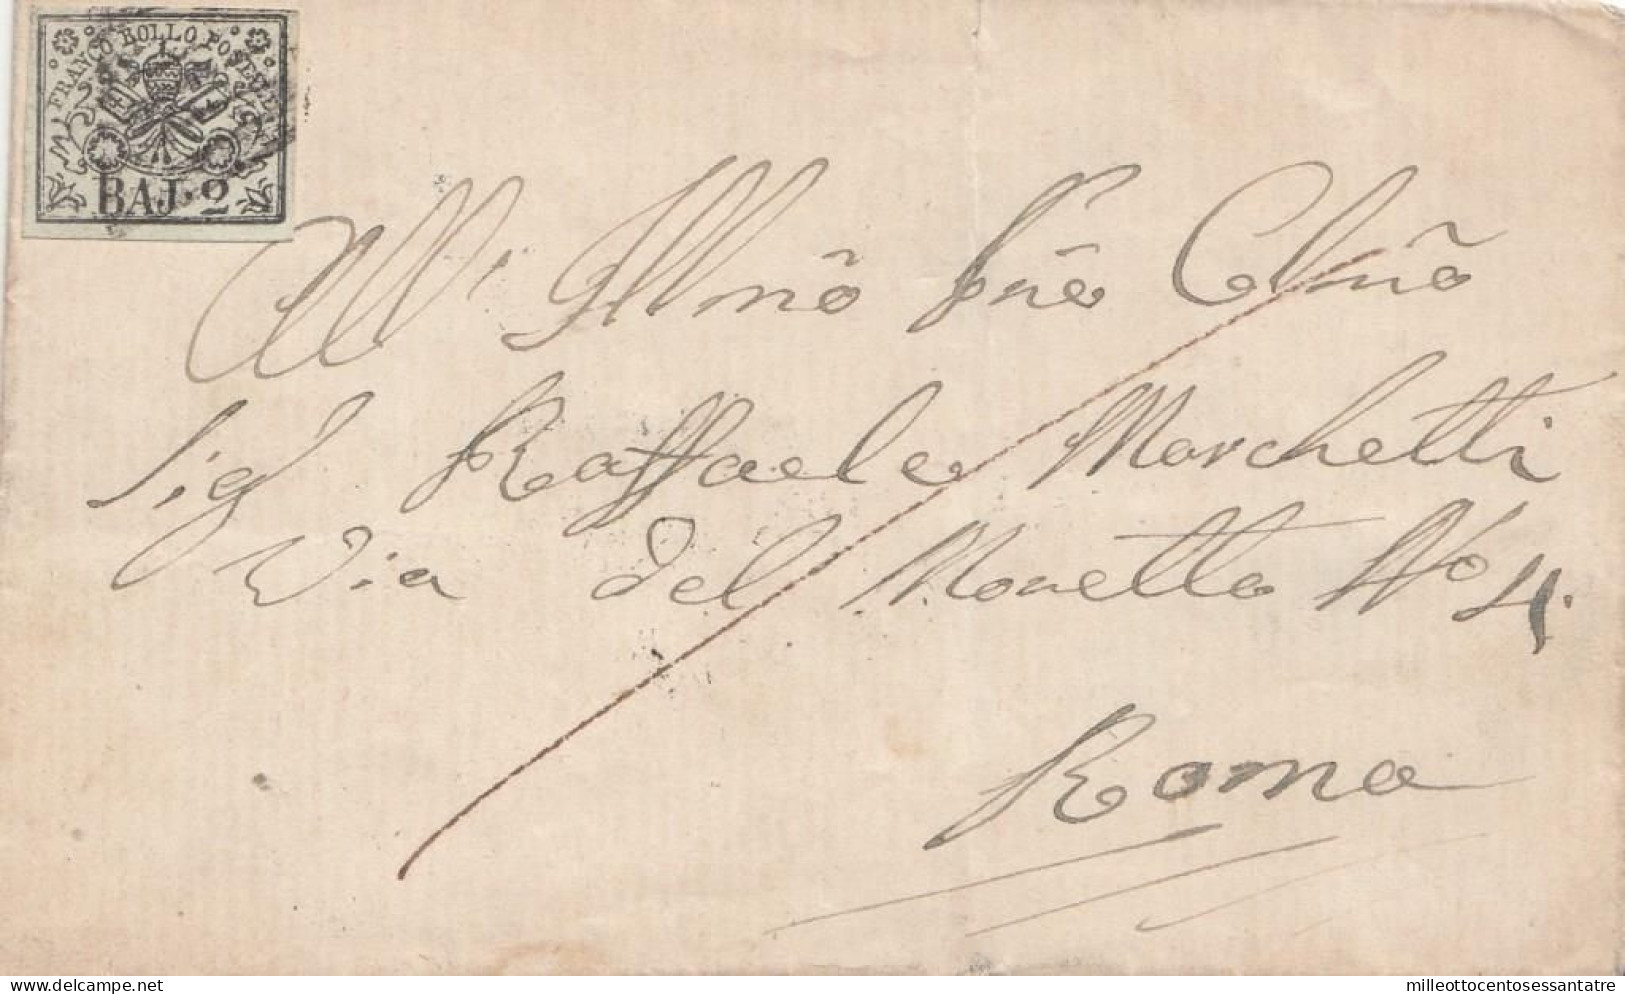 FRANCO BOLLO POSTALE
BAJ. 2
All' Illmõ Pnẽ Colmõ
Sig Raffaele Marchetti
Via del Moretto No 4.
Roma
delcampe.net
milleottocentosessantatre